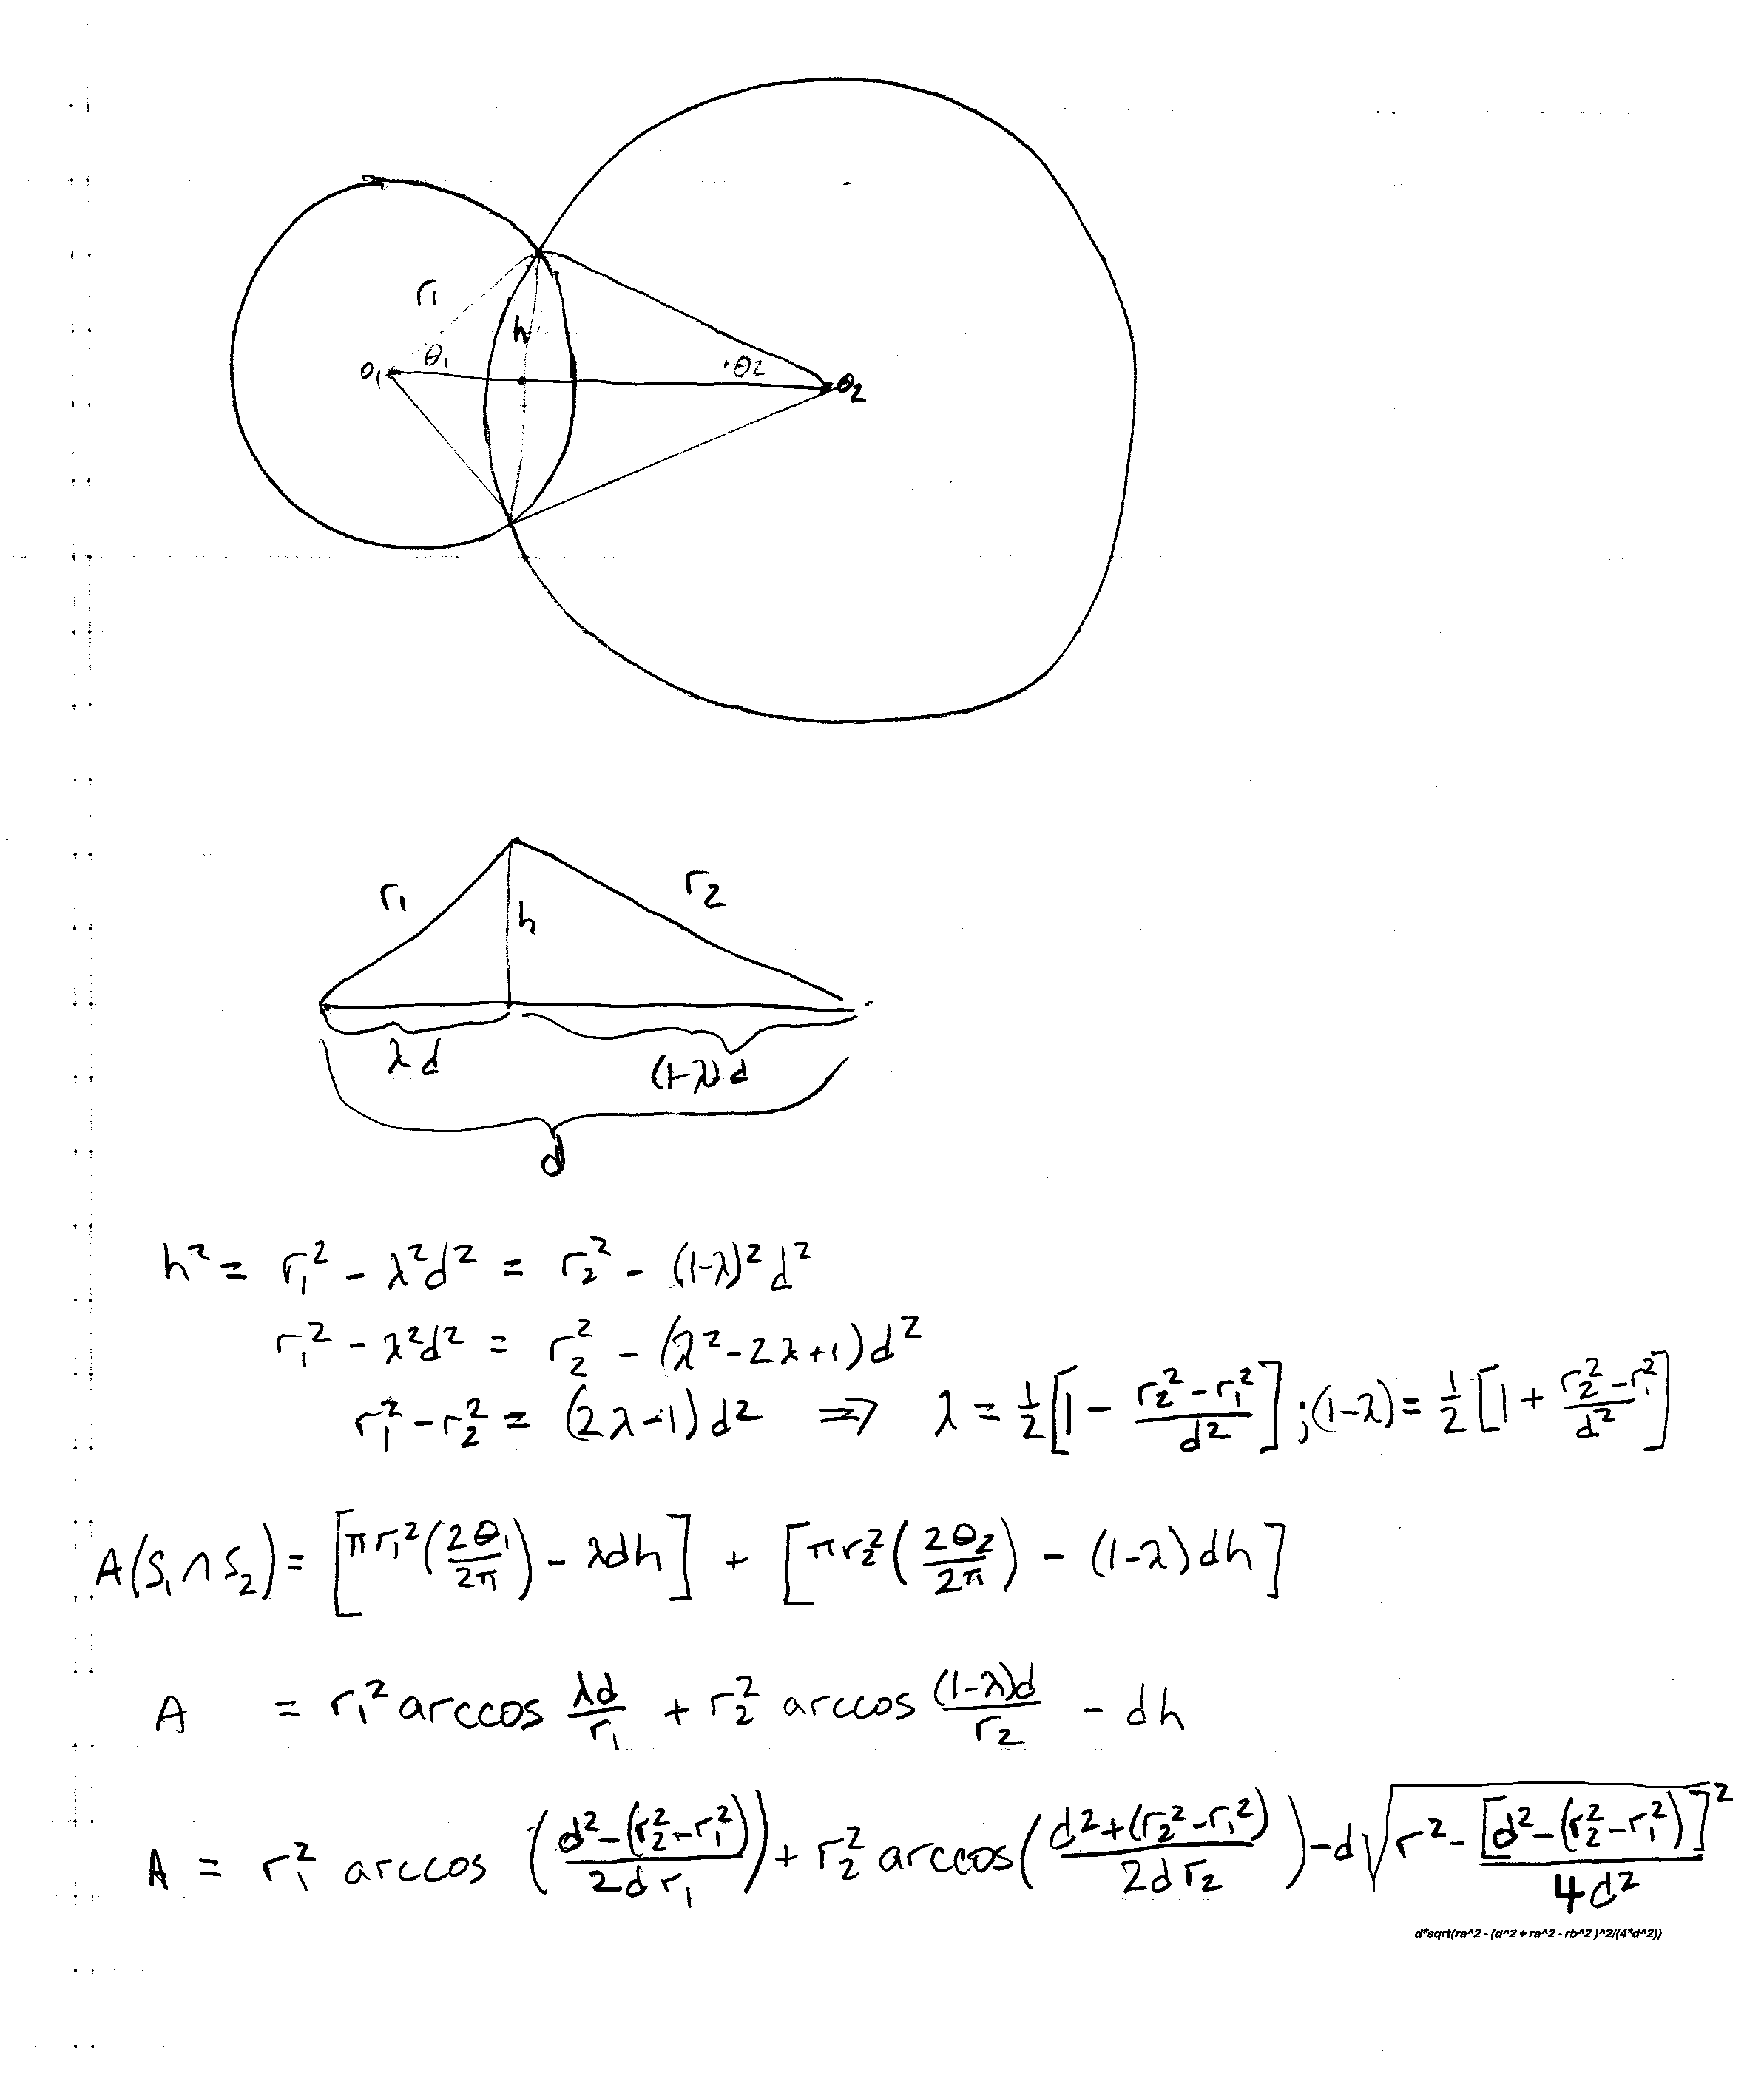 r₁
h
θ₁
θ2
O₁
O₂
r₁
r₂
h
λd
(1-λ)d
d
h² = r₁² - λ²d² = r₂² - (1-λ)²d²
r₁² - λ²d² = r₂² - (λ²-2λ+1)d²
r₁² - r₂² = (2λ-1)d² ⇒ λ = ½[1 - (r₂²-r₁²)/d²] ; (1-λ) = ½[1 + (r₂²-r₁²)/d²]
A(S₁∩S₂) = [πr₁²(2θ₁/2π) - λdh] + [πr₂²(2θ₂/2π) - (1-λ)dh]
A = r₁² arccos λd/r₁ + r₂² arccos (1-λ)d/r₂ - dh
A = r₁² arccos((d²-(r₂²-r₁²))/2dr₁) + r₂² arccos((d²+(r₂²-r₁²))/2dr₂) - d√(r² - [d²-(r₂²-r₁²)]²/4d²)
d*sqrt(ra^2 - (d^2 + ra^2 - rb^2 )^2/(4*d^2))